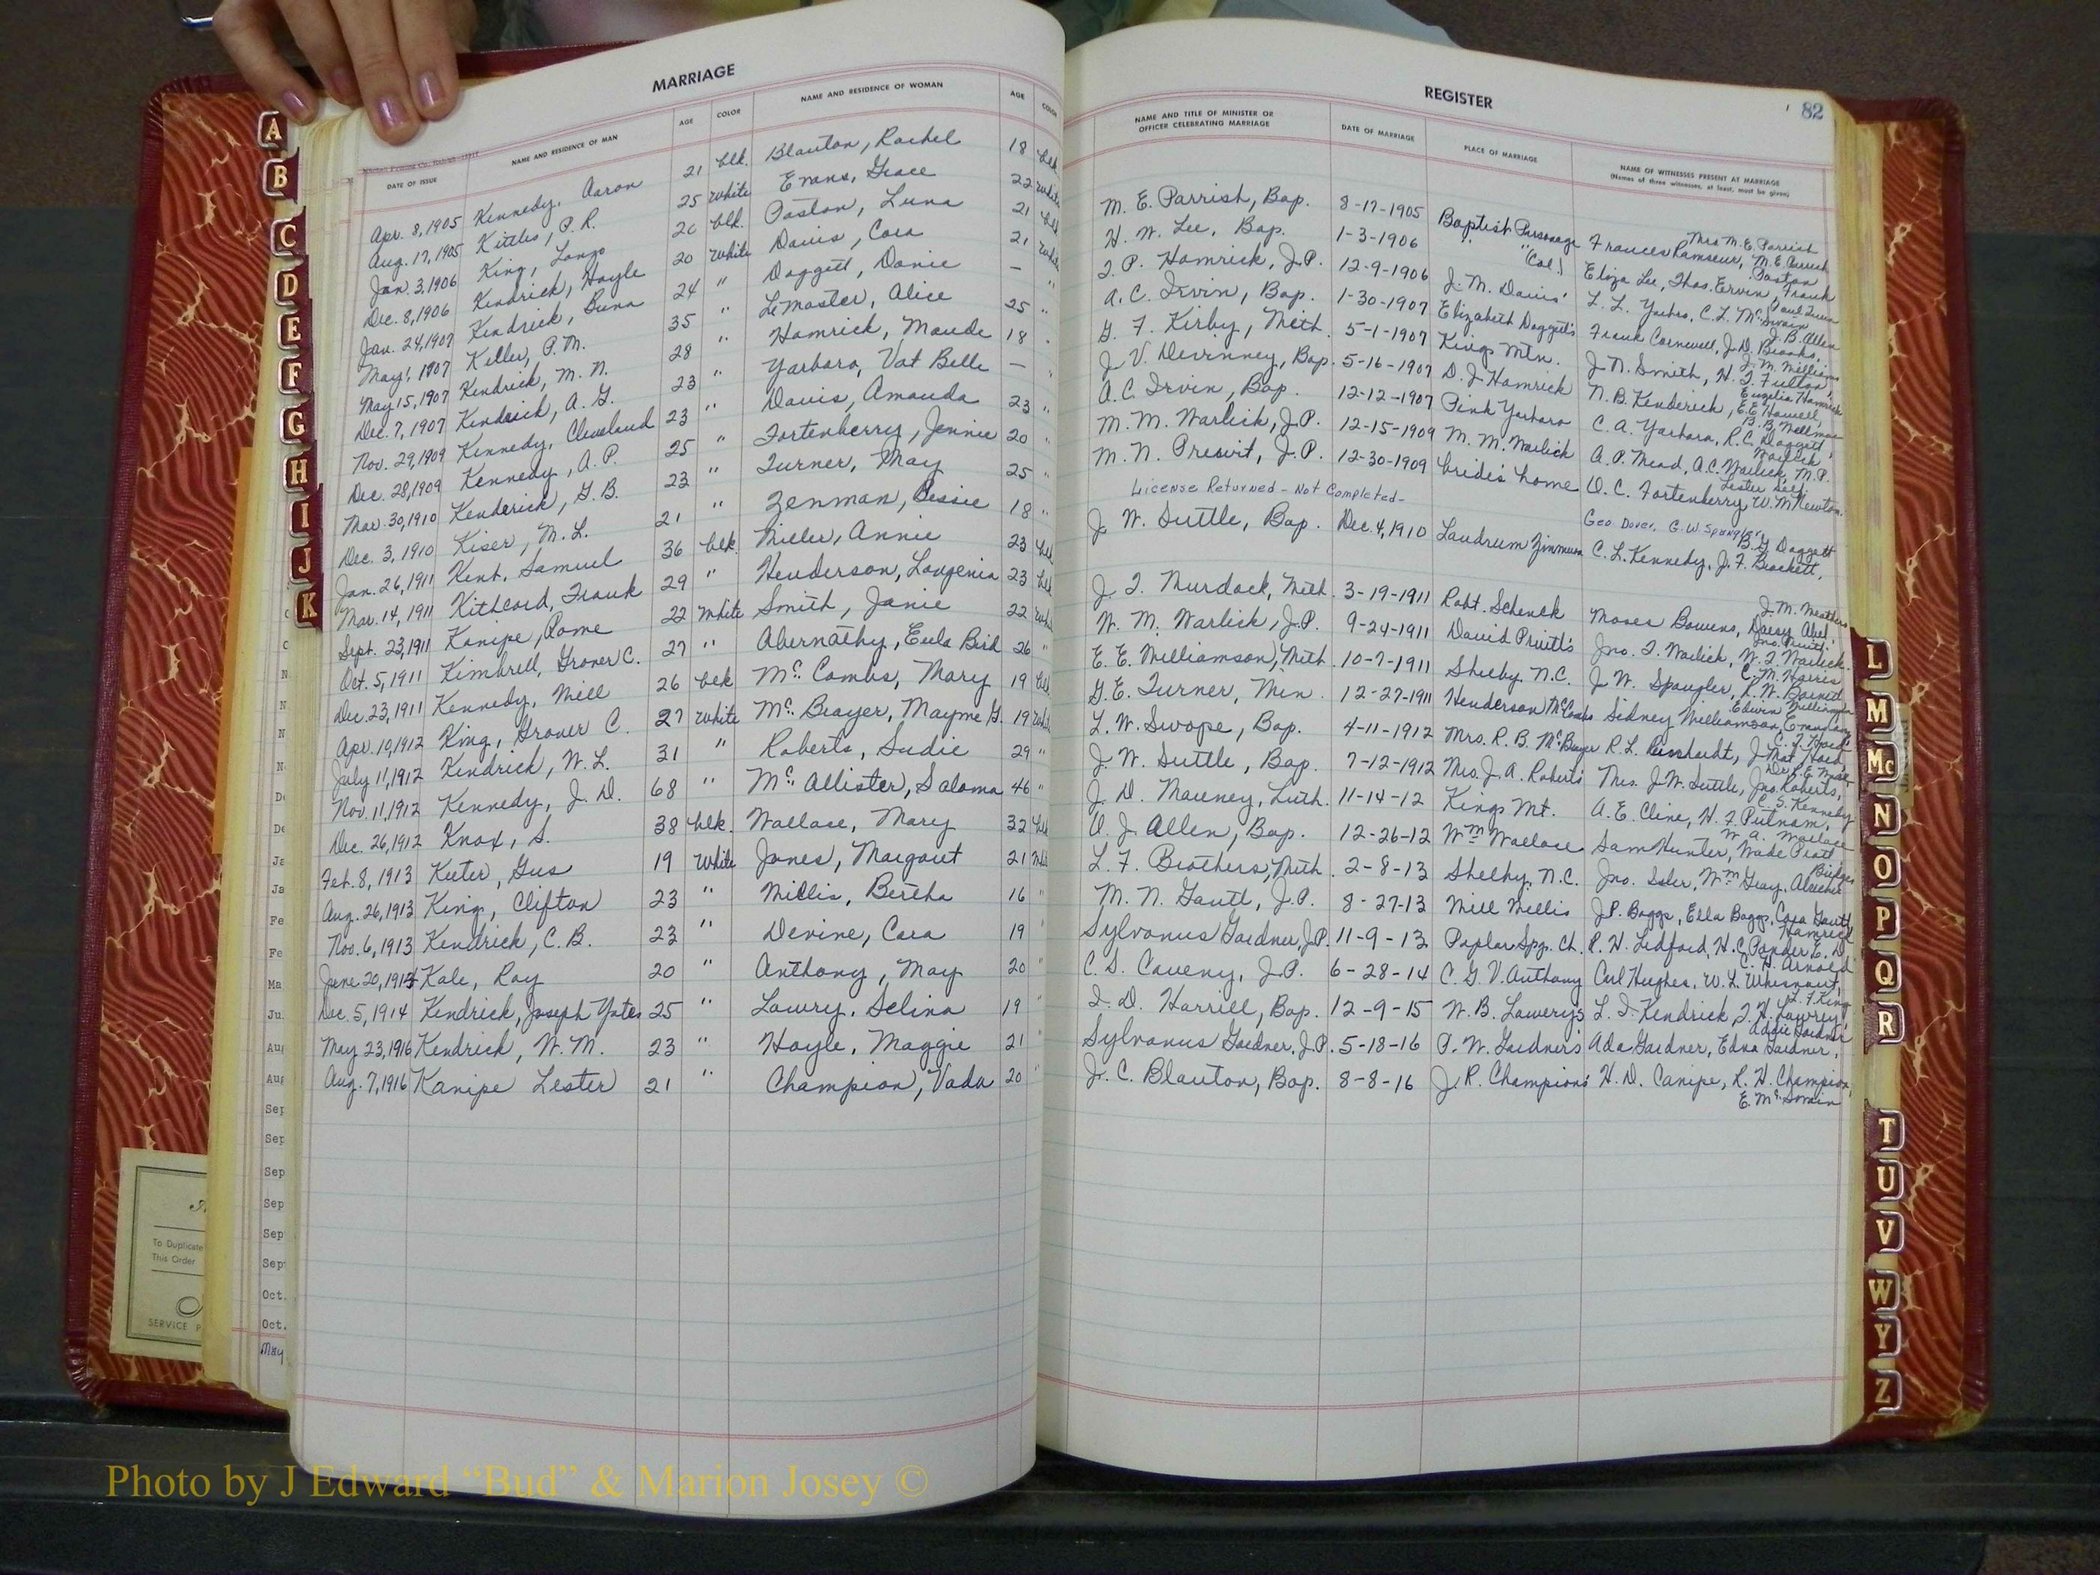 MARRIAGE
DATE OF ISSUE NAME AND RESIDENCE OF MAN AGE COLOR NAME AND RESIDENCE OF WOMAN AGE COLOR
Apr. 8, 1905 Kennedy, Aaron 21 blk. Blanton, Rachel 18 blk
Aug. 17, 1905 Kittles, P. R. 25 White Evans, Grace 22 White
Jan. 3, 1906 King, Lonzo 20 blk. Poston, Luna 21 blk
Dec. 8, 1906 Kendrick, Hoyle 20 White Davis, Cora 21 White
Jan. 24, 1907 Kendrick, Buna 24 " Doggett, Danie — "
May 1, 1907 Keller, P. M. 35 " LeMaster, Alice 25 "
May 15, 1907 Kendrick, M. N. 28 " Hamrick, Maude 18 "
Dec. 7, 1907 Kendrick, A. G. 23 " Yarboro, Vat Belle — "
Nov. 29, 1909 Kennedy, Cleveland 23 " Davis, Amanda 23 "
Dec. 28, 1909 Kennedy, A. P. 25 " Fortenberry, Jennie 20 "
Mar. 30, 1910 Kendrick, G. B. 23 " Turner, May 25 "
Dec. 3, 1910 Kiser, M. L. 21 " Zenman, Bessie 18 "
Jan. 26, 1911 Kent, Samuel 36 blk. Miller, Annie 23 blk
Mar. 14, 1911 Kithcord, Frank 29 " Henderson, Lovgenia 23 blk
Sept. 23, 1911 Kanipe, Rome 22 White Smith, Janie 22 White
Oct. 5, 1911 Kimbrell, Grover C. 27 " Abernathy, Eula Bird 26 "
Dec. 23, 1911 Kennedy, Will 26 blk McCombs, Mary 19 blk
Apr. 10, 1912 King, Grover C. 27 White McBrayer, Mayme G. 19 White
July 11, 1912 Kendrick, W. L. 31 " Roberts, Sudie 29 "
Nov. 11, 1912 Kennedy, J. D. 68 " McAllister, Saloma 46 "
Dec. 26, 1912 Knox, S. 38 blk. Wallace, Mary 32 blk
Feb. 8, 1913 Keeter, Gus 19 White Jones, Margaret 21 White
Aug. 26, 1913 King, Clifton 23 " Willis, Bertha 16 "
Nov. 6, 1913 Kendrick, C. B. 23 " Devine, Cora 19 "
June 20, 1914 Kale, Roy 20 " Anthony, May 20 "
Dec. 5, 1914 Kendrick, Joseph Yates 25 " Lowry, Selina 19 "
May 23, 1916 Kendrick, W. M. 23 " Hoyle, Maggie 21 "
Aug. 7, 1916 Kanipe Lester 21 " Champion, Vada 20 "
REGISTER
82
NAME AND TITLE OF MINISTER OR OFFICER CELEBRATING MARRIAGE DATE OF MARRIAGE PLACE OF MARRIAGE NAME OF WITNESSES PRESENT AT MARRIAGE
(Names of three witnesses, at least, must be given)
Mrs M. E. Parrish
M. E. Parrish, Bap. 8-17-1905 Baptist Parsonage Frances Ramseur, M. E. Parrish
Poston
H. W. Lee, Bap. 1-3-1906 " " (Col.) Eliza Lee, Thos. Ervin, Frank
T. P. Hamrick, J.P. 12-9-1906 J. M. Davis' L. L. Yarbro, C. L. McSwain
A. C. Irvin, Bap. 1-30-1907 Elizabeth Doggett's Frank Cornwell, J. D. Brooks,
J. B. Allen
G. F. Kirby, Meth. 5-1-1907 Kings Mtn. J. N. Smith, H. T. Fulton,
J. M. Williams
J. V. Devinney, Bap. 5-16-1907 D. J. Hamrick N. B. Kenderick, E. E. Howell
A. C. Irvin, Bap. 12-12-1907 Pink Yarboro C. A. Yarboro, R. C. Doggett,
M. M. Warlick, J.P. 12-15-1909 M. M. Warlick A. P. Mead, A. C. Warlick, M. P.
Warlick
M. N. Prewit, J.P. 12-30-1909 bride's home O. C. Fortenberry, W. M. Newton.
License Returned - Not Completed - Geo Dover, G. W. Spangler
B. G. Doggett
J. W. Suttle, Bap. Dec. 4, 1910 Landrum Zimmerman C. L. Kennedy, J. F. Brackett,
J. T. Murdock, Meth. 3-19-1911 Robt. Schenck Moses Bowens, Daisy Abel,
W. M. Warlick, J.P. 9-24-1911 David Pruitt's Jno. T. Warlick, W. T. Warlick.
C. M. Harris
E. E. Williamson, Meth 10-7-1911 Shelby N.C. J. W. Spangler, R. W. Barnett
Edwin Williamson
G. E. Turner, Min. 12-27-1911 Henderson McCombs Sidney Williamson,
L. W. Swope, Bap. 4-11-1912 Mrs. R. B. McBrayer R. L. Reinhardt, J. Mat Hord
J. W. Suttle, Bap. 7-12-1912 Mrs. J. A. Roberts' Mrs. J. W. Suttle, Jno. Roberts,
C. S. Kennedy
J. D. Mauney, Luth. 11-14-12 Kings Mt. A. E. Cline, H. F. Putnam,
W. A. Wallace
O. J. Allen, Bap. 12-26-12 Wm Wallace Sam Hunter, Wade Pratt
Bridges
L. F. Brothers, Meth. 2-8-13 Shelby, N.C. Jno. Isler, Wm Gray,
M. N. Gantt, J.P. 8-27-13 Will Willis J. P. Boggs, Ella Boggs, Cora Gantt
Hamrick
Sylvanus Gardner, J.P. 11-9-13 Poplar Spg. Ch. R. H. Ledford, H. C. Ponder E. D.
C. H. Arnold
C. S. Caveny, J.P. 6-28-14 C. G. V. Anthony Carl Hughes, W. L. Whisnant,
L. F. King
I. D. Harrill, Bap. 12-9-15 W. B. Lowery's L. I. Kendrick, J. H. Lowrey
Addie Gardner
Sylvanus Gardner, J.P. 5-18-16 P. W. Gardner's Ada Gardner, Edna Gardner,
J. C. Blanton, Bap. 8-8-16 J. R. Champions' H. D. Canipe, R. H. Champion,
E. McSwain
A
B
C
D
E
F
G
H
I
J
K
L
M
Mc
N
O
P
Q
R
T
U
V
W
Y
Z
To Duplicate
This Order
SERVICE
Sep
Sep
Sep
Sep
Sep
Oct.
Oct.
May
Photo by J Edward “Bud” & Marion Josey ©